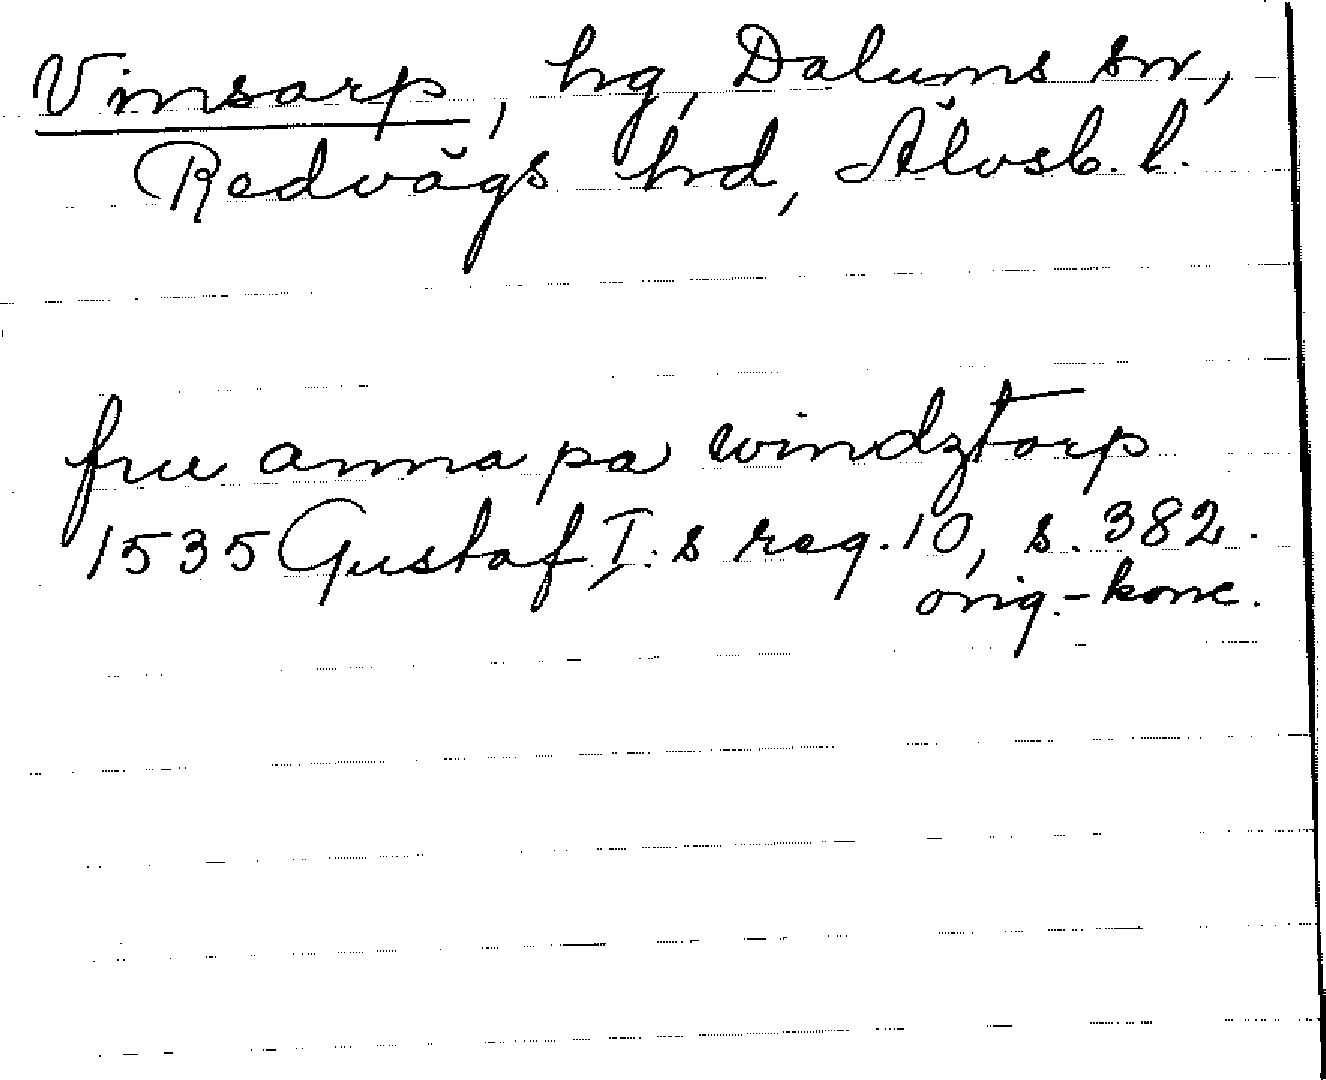 Vinsarp, hg, Dalums sn,
Redvägs hd, Älvsb. l.
frue anna pa windztorp
1535 Gustaf I:s reg. 10, s. 382.
orig.-konc.